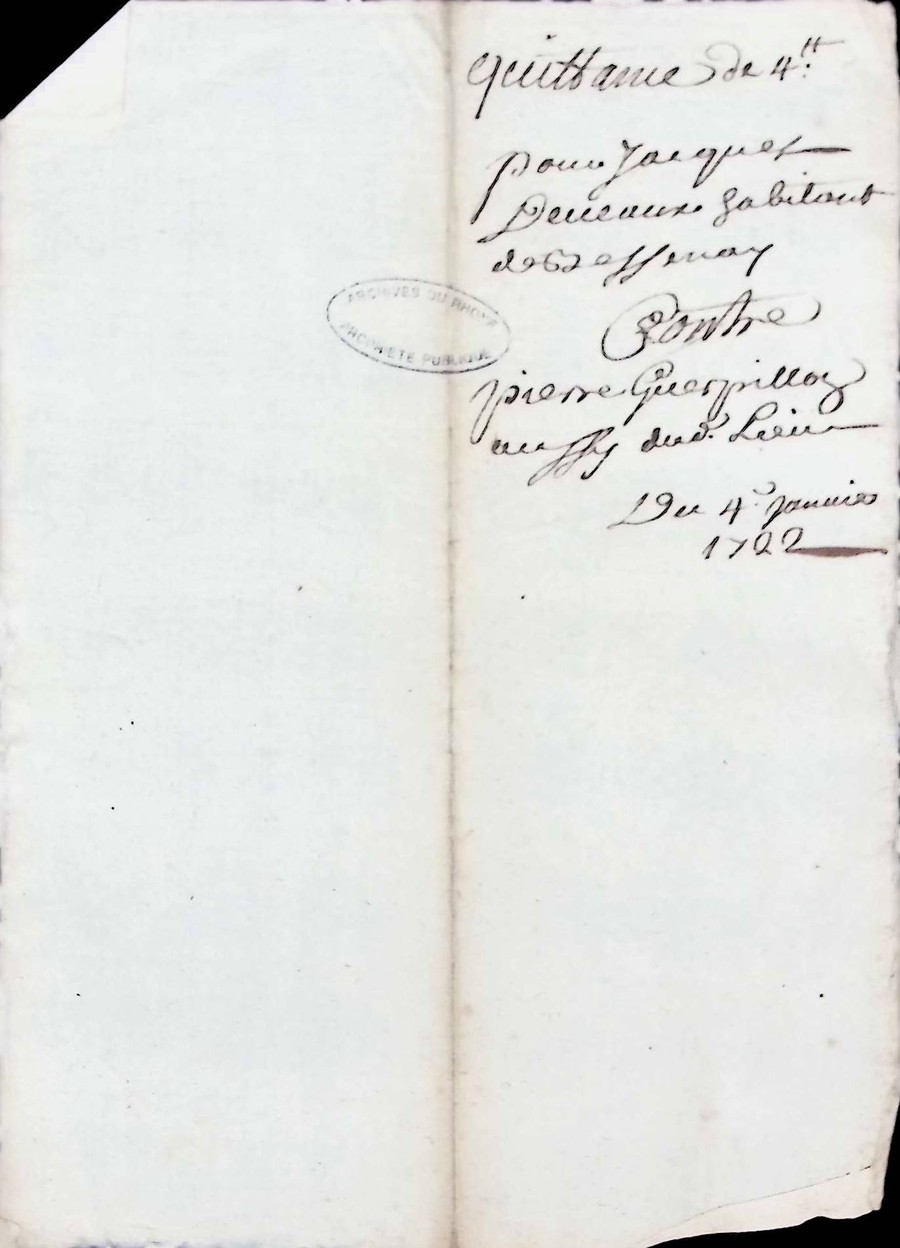 Quittance de 4.tt
pour Jacques
Deveaux habitant
de Bessenay
Contre
pierre Guerpillon
aussy dud. Lieu
Du 4.e janvier
1722
ARCHIVES DU RHONE
PROPRIÉTÉ PUBLIQUE